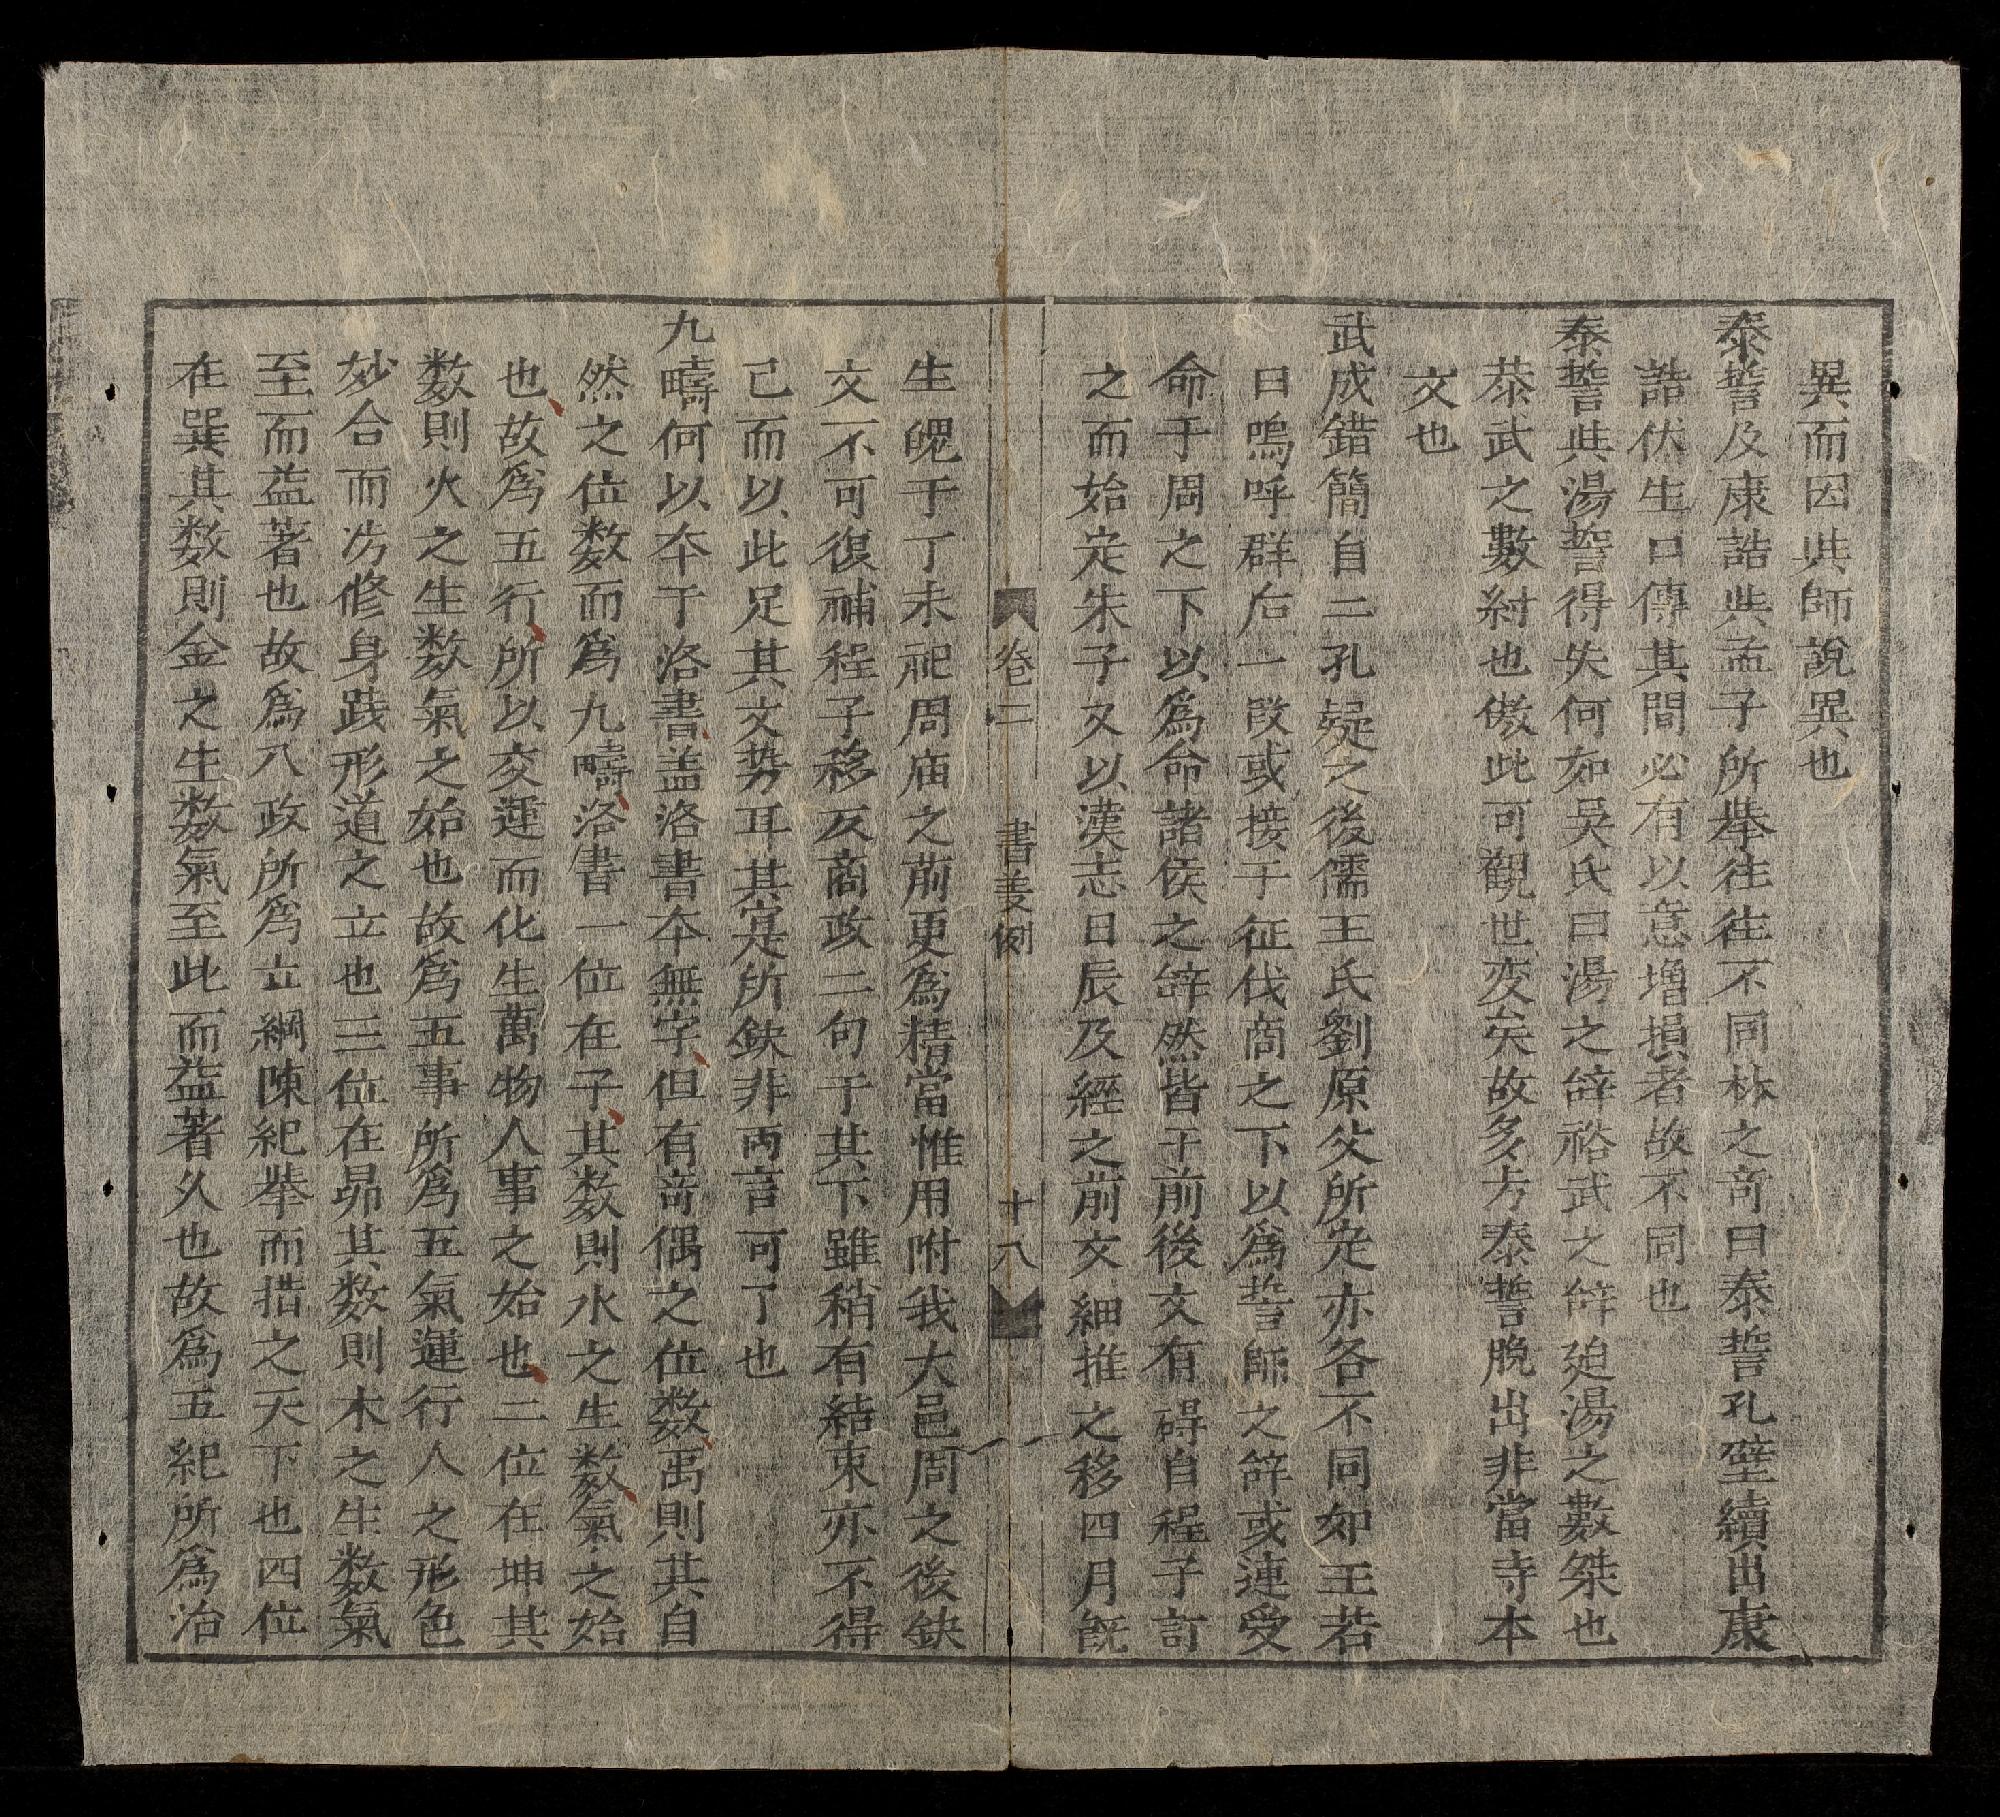 異而因其師說異也
泰誓及康誥與孟子所舉徃徃不同林之竒曰泰誓孔壁續出康
誥伏生口傳其間必有以意增損者故不同也
泰誓與湯誓得失何如吳氏曰湯之辞裕武之辞廹湯之數桀也
恭武之數紂也傲此可觀世変矣故多方泰誓脱出非當寺本
文也
武成錯簡自二孔疑之後儒王氏劉原父所定亦各不同如王若
曰嗚呼群后一段或接于征伐商之下以爲誓師之辞或連受
命于周之下以爲命諸侯之辞然皆于前後文有碍自程子訂
之而始定朱子又以漢志日辰及經之前文細推之移四月旣
卷二　書義例　十八
生魄于丁未祀周庙之前更爲精當惟用附我大邑周之後缺
文不可復補程子移反商政二句于其下雖稍有結束亦不得
已而以此足其文势耳其寔所缺非両言可了也
九疇何以夲于洛書盖洛書夲無字但有竒偶之位数禹則其自
然之位数而爲九疇洛書一位在子其数則水之生数氣之始
也故爲五行所以交運而化生萬物人事之始也二位在坤其
数則火之生数氣之始也故爲五事所爲五氣運行人之形色
妙合而为修身践形道之立也三位在昴其数則木之生数氣
至而益著也故爲八政所爲立綱陳紀舉而措之天下也四位
在巽其数則金之生数氣至此而益著久也故爲五紀所爲治